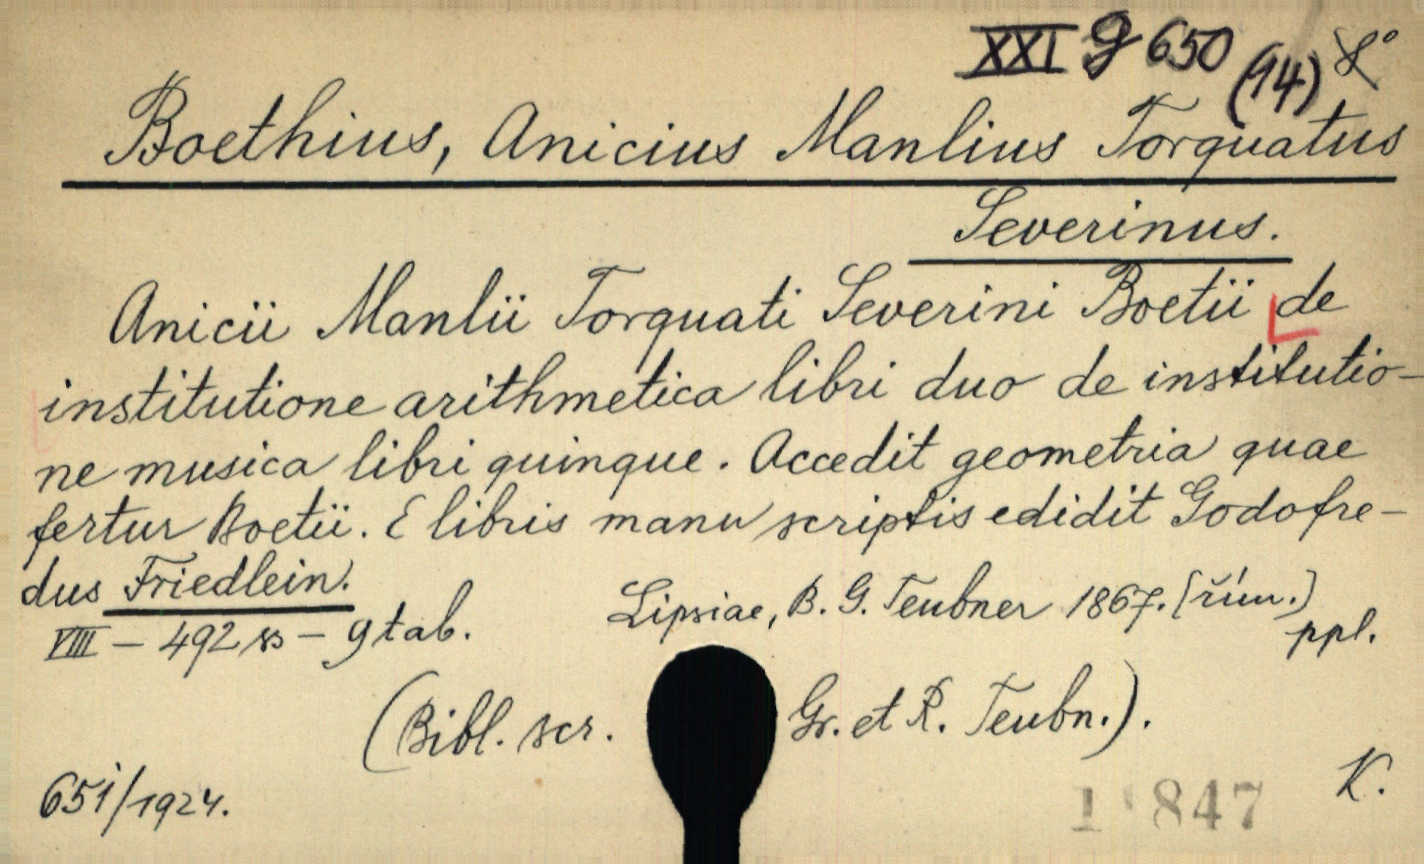 XXI g 650 (14) 8°
Boethius, Anicius Manlius Torquatus
Severinus.
Anicii Manlii Torquati Severini Boetii de
institutione arithmetica libri duo de institutio-
ne musica libri quinque. Accedit geometria quae
fertur Boetii. E libris manu scriptis edidit Godofre-
dus Friedlein.
Lipsiae, B. G. Teubner 1867. [řím.]
VIII – 492 ss – 9 tab.
ppl.
(Bibl. scr. Gr. et R. Teubn.).
651/1924.
K.
1 847